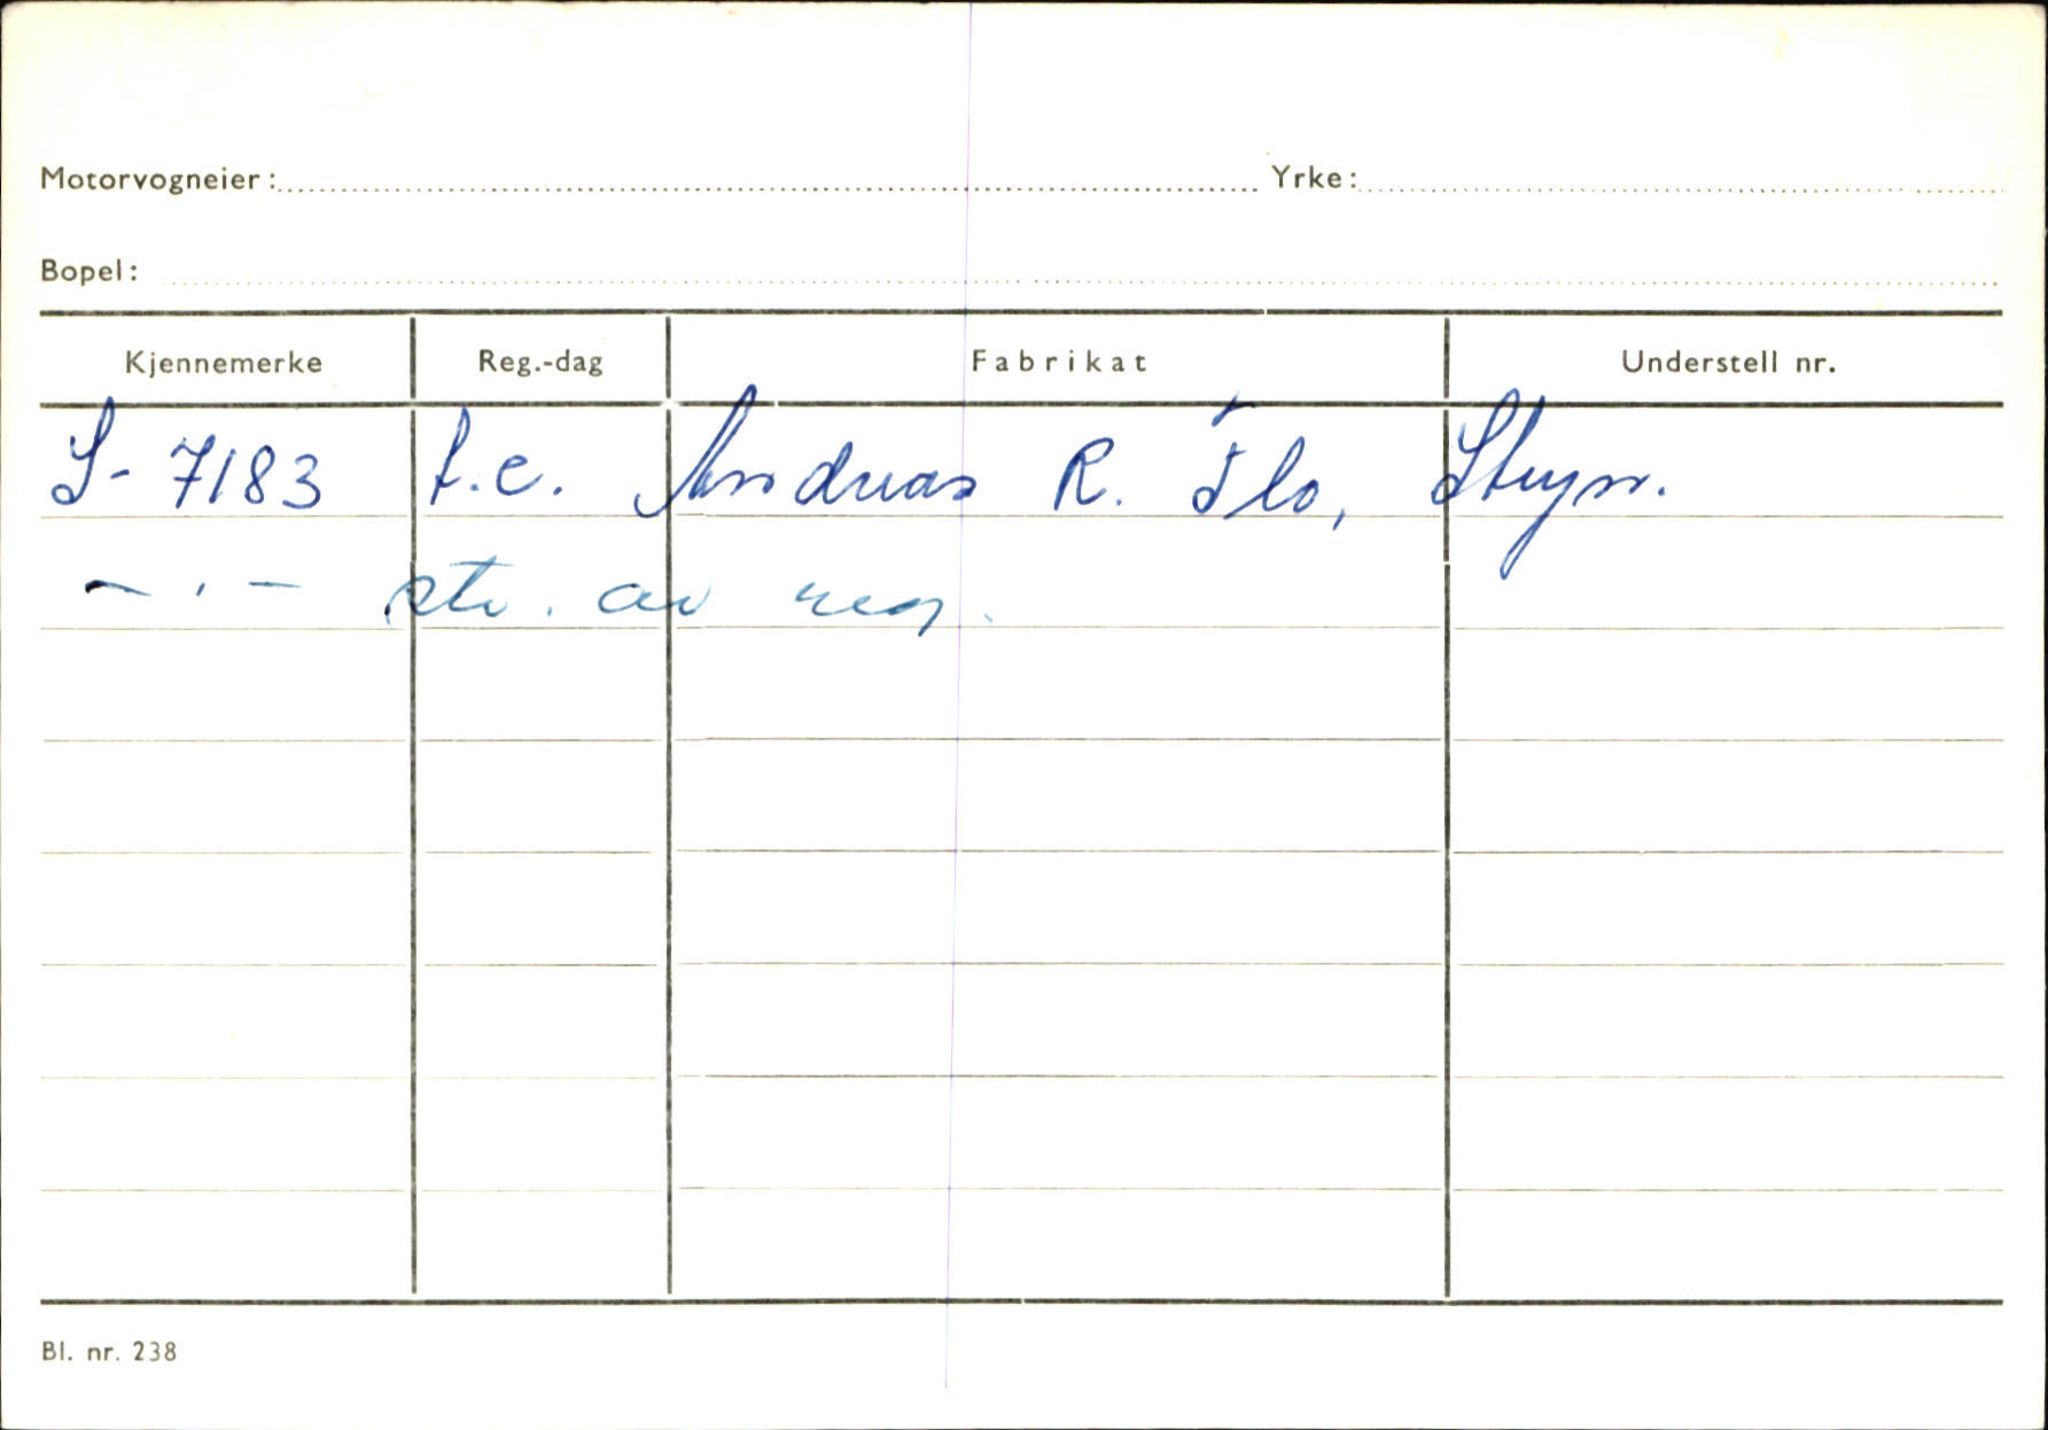 Motorvogneier: Yrke:
Bopel:
Kjennemerke Reg.-dag Fabrikat Understell nr.
S- 7183 t.e. Andreas R. Flo, Stryn.
— " — str. av reg.
Bl. nr. 238